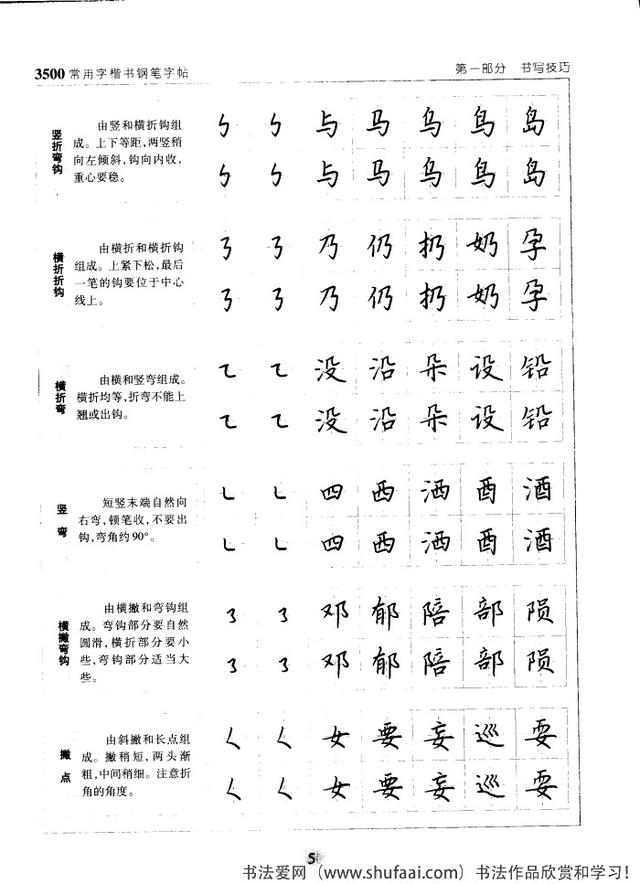 3500常用字楷书钢笔字帖 第一部分 书写技巧
竖折弯钩
由竖和横折钩组
成。上下等距,两竖稍
向左倾斜,钩向内收,
重心要稳。
㇉ ㇉ 与 马 乌 鸟 岛
㇉ ㇉ 与 马 乌 鸟 岛
横折折钩
由横折和横折钩
组成。上紧下松,最后
一笔的钩要位于中心
线上。
㇡ ㇡ 乃 仍 扔 奶 孕
㇡ ㇡ 乃 仍 扔 奶 孕
横折弯
由横和竖弯组成。
横折均等,折弯不能上
翘或出钩。
㇍ ㇍ 没 沿 朵 设 铅
㇍ ㇍ 没 沿 朵 设 铅
竖弯
短竖末端自然向
右弯,顿笔收,不要出
钩,弯角约90°。
㇄ ㇄ 四 西 洒 酉 酒
㇄ ㇄ 四 西 洒 酉 酒
横撇弯钩
由横撇和弯钩组
成。弯钩部分要自然
圆滑,横折部分要小
些,弯钩部分适当大
些。
㇌ ㇌ 邓 郁 陪 部 陨
㇌ ㇌ 邓 郁 陪 部 陨
撇点
由斜撇和长点组
成。撇稍短,两头渐
粗,中间稍细。注意折
角的角度。
㇛ ㇛ 女 要 妄 巡 耍
㇛ ㇛ 女 要 妄 巡 耍
5
书法爱网(www.shufaai.com)书法作品欣赏和学习!